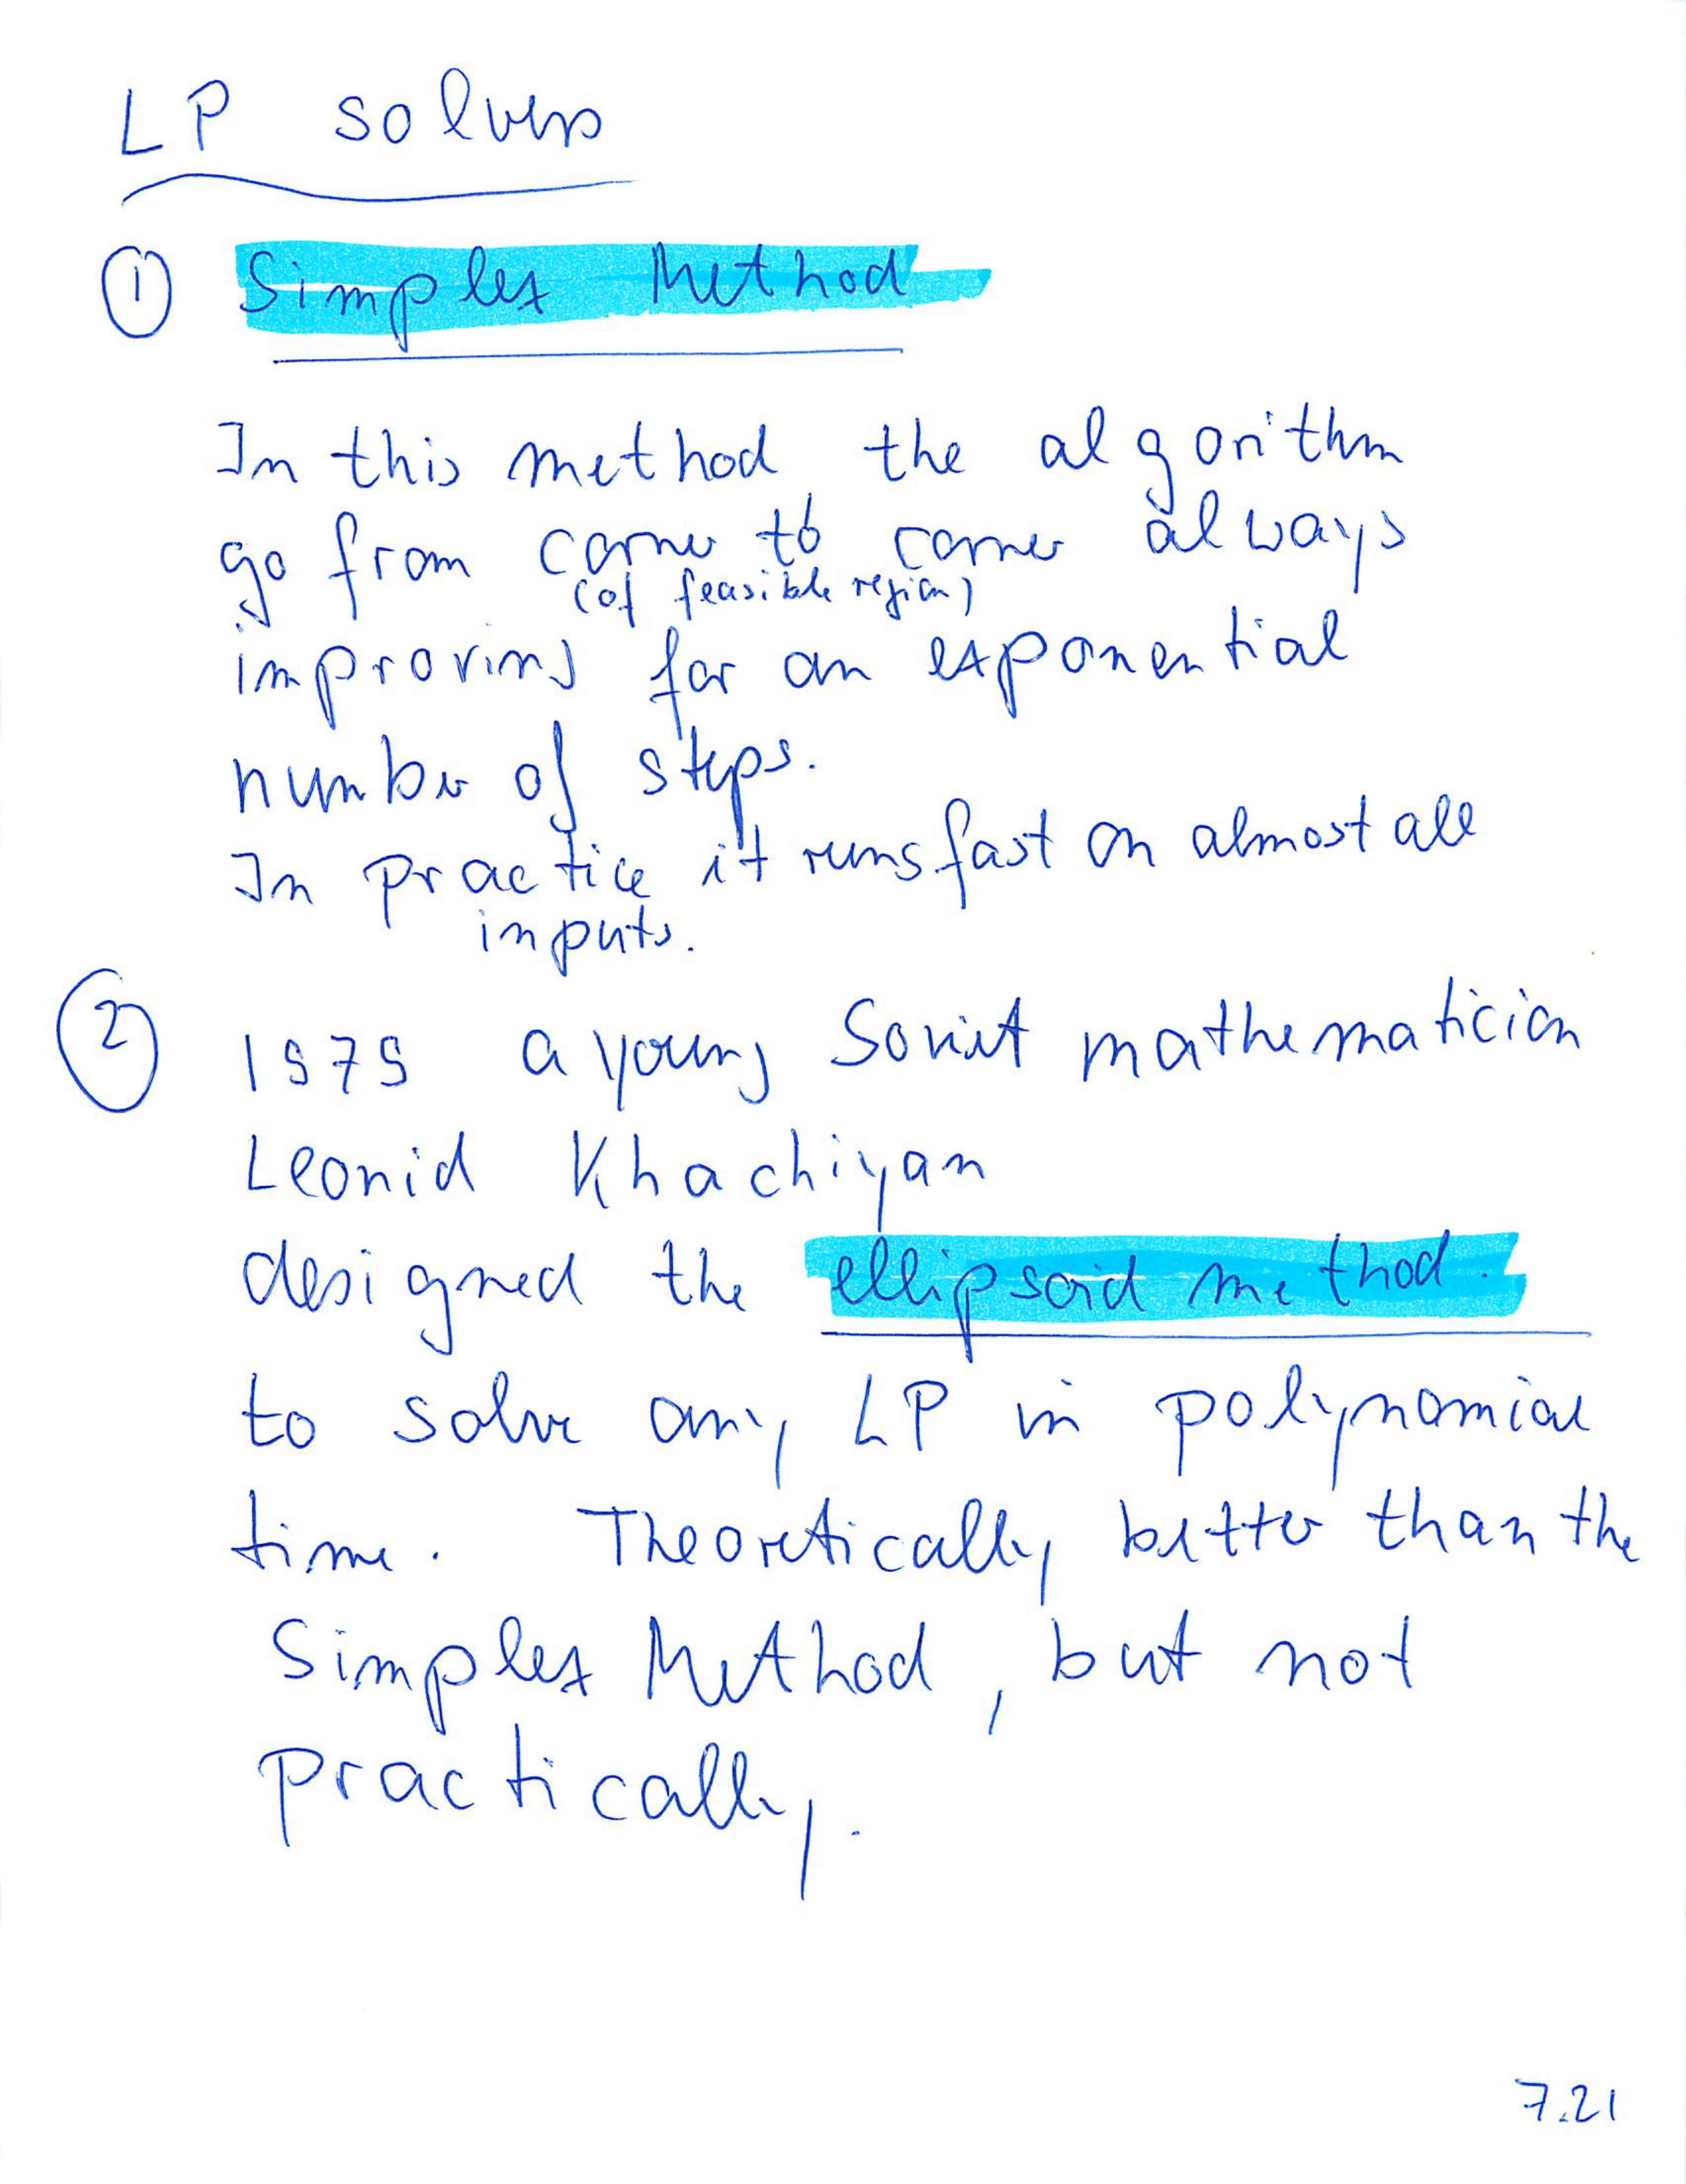 LP solvers
① Simplex Method
In this method the algorithm
go from corner to corner always
(of feasible region)
improving for an exponential
number of steps.
In practice it runs fast on almost all
inputs.
② 1979 a young Soviet mathematician
Leonid Khachiyan
designed the ellipsoid method.
to solve any LP in polynomial
time. Theoretically better than the
Simplex Method, but not
practically.
7.21